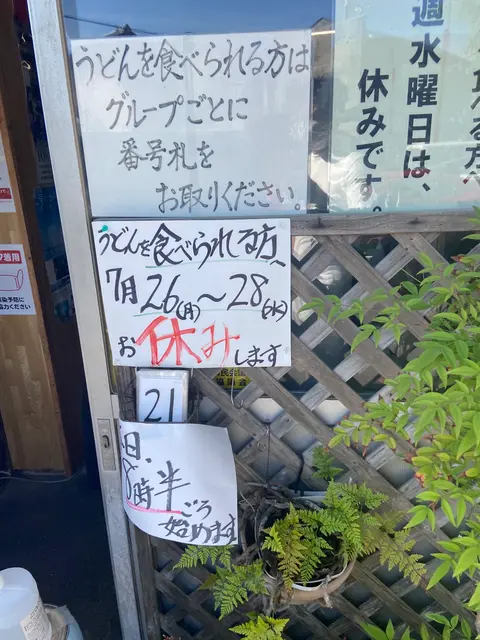 うどんを食べられる方は
グループごとに
番号札を
お取りください。
週水曜日は、
休みです。
うどんを食べられる方、
7月26(月)～28(水)
お休みします
21
日、
8時半ごろ
始めます